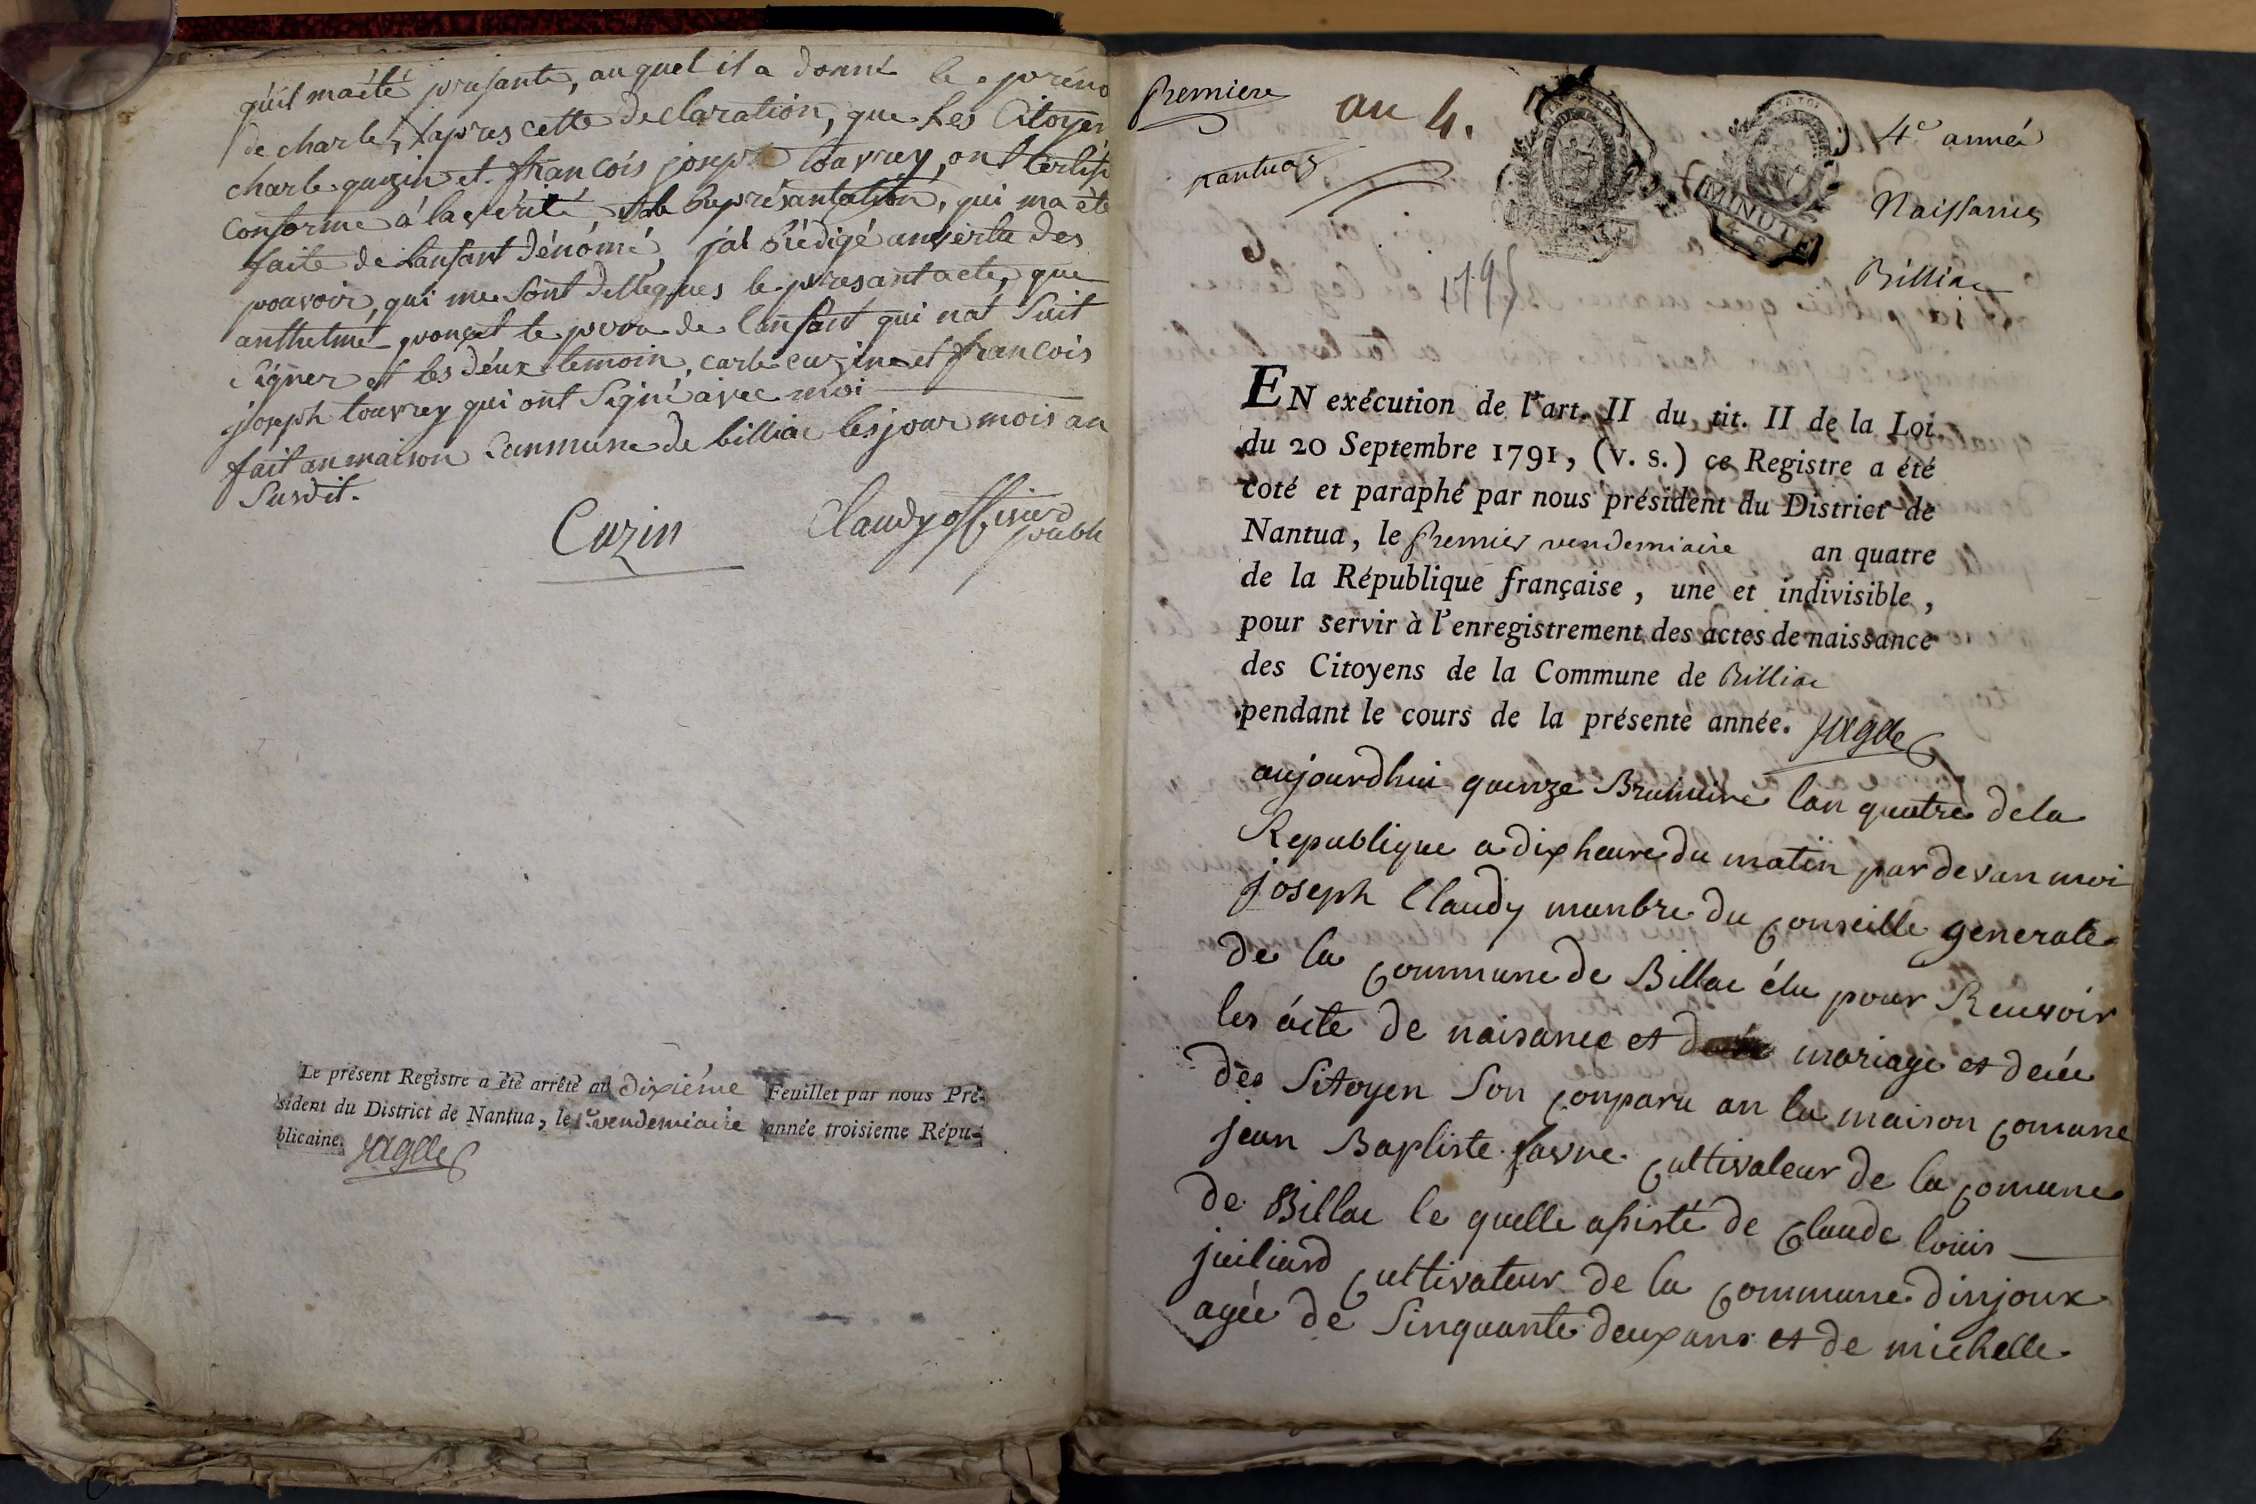 qu'il maété presante, auquel il a donné le préno
de charle, & apres cette declaration, que les Citoyen
charle quzin et francois joseph touvrey, ont Certifi
conforme á la vérité, & la Représantation, qui ma été
faite de lanfant dénómé, j'ai Rédigé anvertu des
pouvoir, qui me sont dellegues le presant acte, que
anthelme ponçet le pere de lanfant qui nat Sait
Signer et les déux temoin, carle cuzin et francois
joseph touvrey qui ont Signé avec moi
fait an maison Commune de billiac les jour mois an
Susdit.
Cuzin Claudy officierd
publi
Le présent Registre a été arrêté au dixiéme Feuillet par nous Pré-
sident du District de Nantua, le 1er vendemiaire année troisieme Répu-
blicaine. Jagde
Premiere
Nantua
an 4.
1795
MINUTE
4e année
Naissances
Billiac
EN exécution de l'art. II du tit. II de la Loi
du 20 Septembre 1791, (v. s.) ce Registre a été
coté et paraphé par nous président du District de
Nantua, le premier vendemiaire an quatre
de la République française, une et indivisible,
pour servir à l'enregistrement des actes de naissance
des Citoyens de la Commune de Billiac
pendant le cours de la présente année. Jagde
aujourdhui quinze Brumaire lan quatre dela
Republique a dix heure du matin par devan moi
joseph Claudy manbre du Conseille generale
de la Commune de Billac élu pour Reusvoir
les acte de naisance et mariage et decée
des Sitoyen Son Conparu an la maison Comune
jean Baptiste favre Cultivateur de la Comune
de Billac le quelle asisté de Claude louis
juiliard Cultivateur de la Commune dinjoux
agée de Sinquante deux ans et de michelle